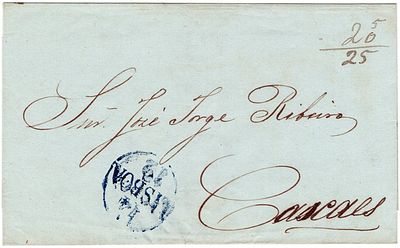 20 5
25
Snr. José Jorge Ribeiro
LISBOA
Cascaes